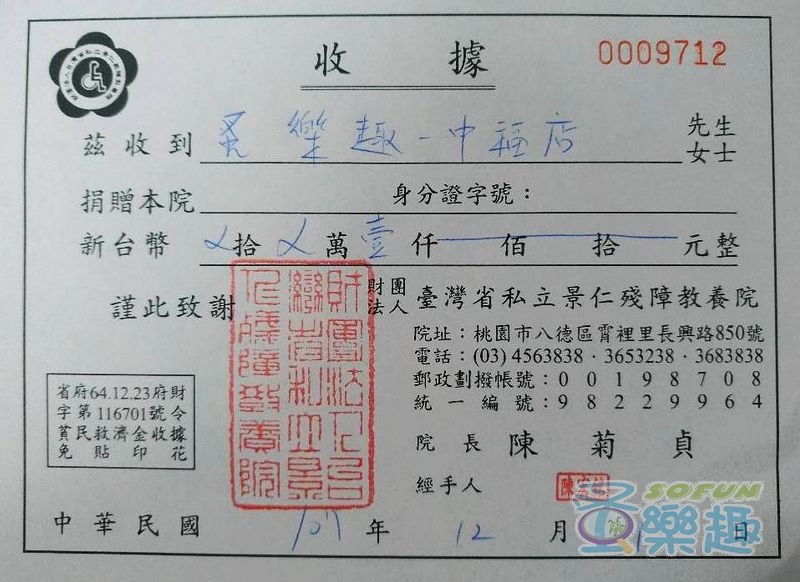 收據
0009712
茲收到 蛋樂趣-中福店 先生
女士
捐贈本院 身分證字號：
新台幣 ㄨ拾ㄨ萬壹仟 佰 拾 元整
謹此致謝
財團
法人 臺灣省私立景仁殘障教養院
院址：桃園市八德區霄裡里長興路850號
電話：(03) 4563838・3653238・3683838
郵政劃撥帳號：00198708
統一編號：98229964
省府64.12.23府財
字第116701號令
貧民救濟金收據
免貼印花
財團法人台灣省私立景仁殘障教養院
院長 陳菊貞
經手人
中華民國 107 年 12 月 日
SOFUN
蛋樂趣